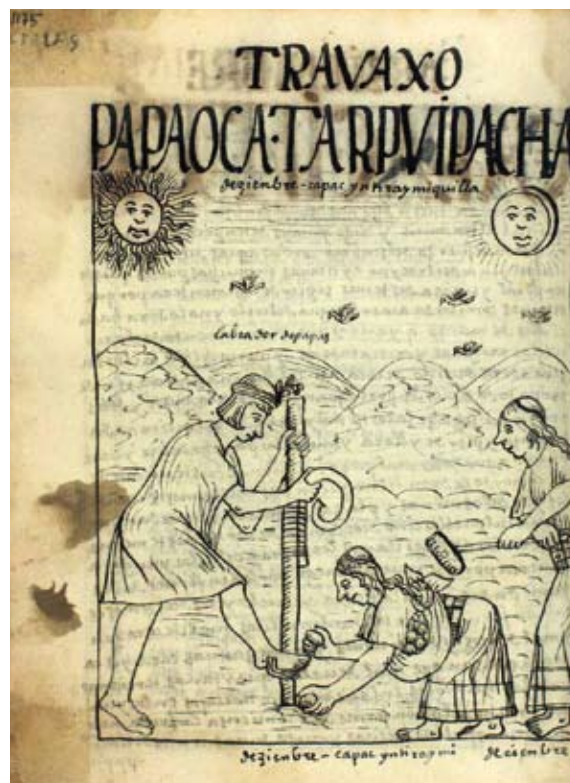 1175
TRAVAXO
PAPAOCA·TARPVIPACHA
deziembre - capac yntiraymiquilla
labrador de papas
deziembre - capac yntiraymi
deziembre